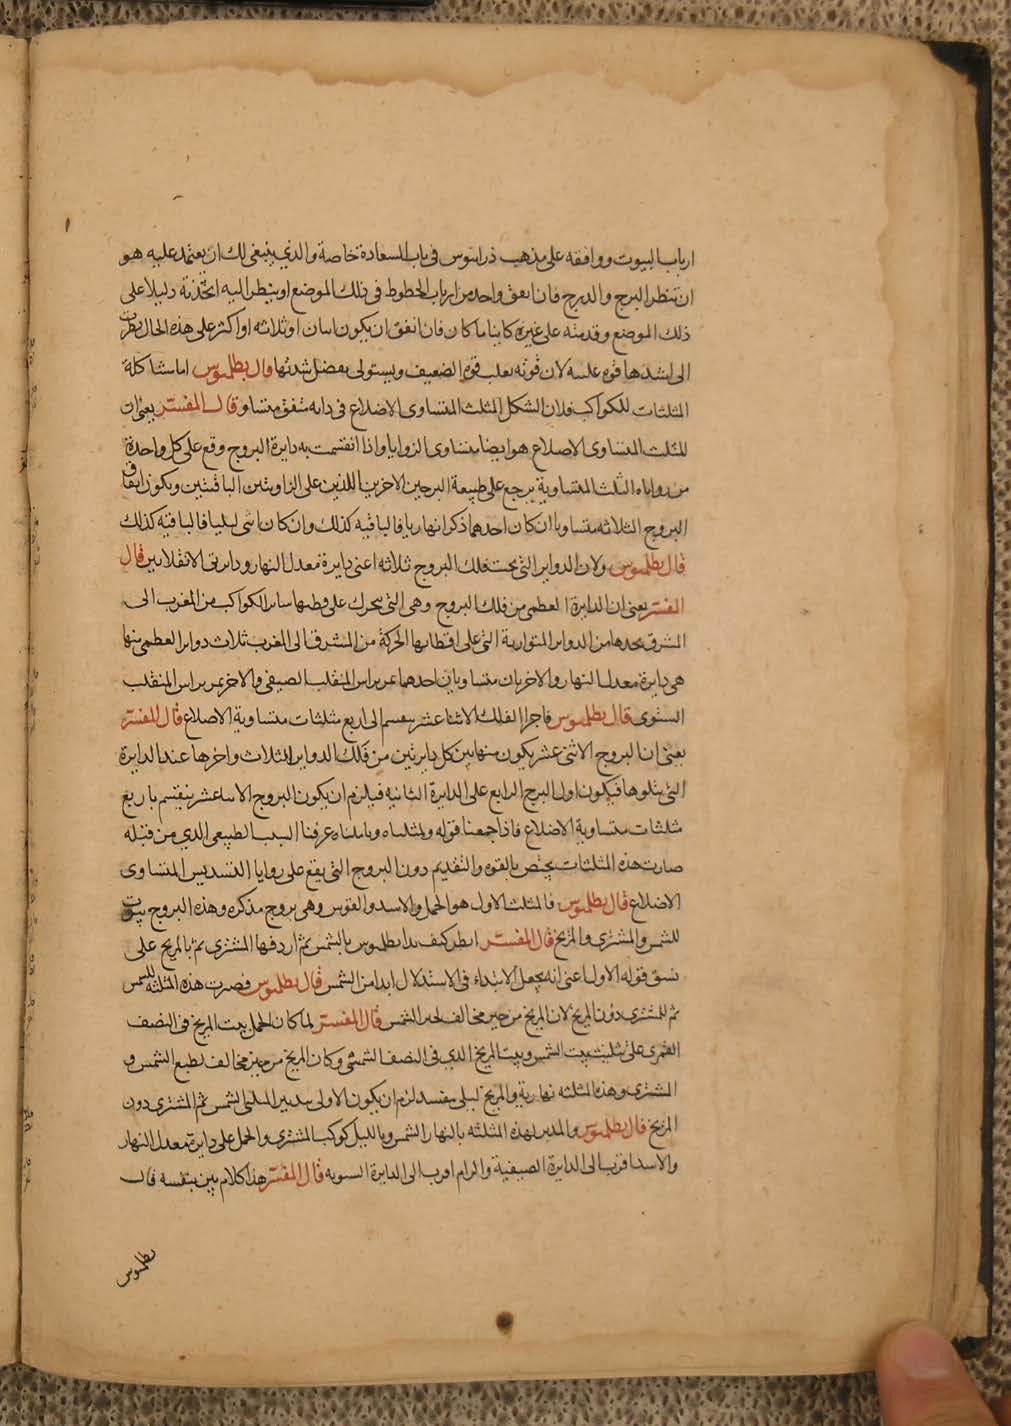 ارباب البيوت ووافقه على مذهب ذراسوس فى باب السعادة خاصة والذي ينبغى لك ان يعتمد عليه هو
ان تنظر البرج والدرج فان اتفق واحد من ارباب الحظوظ فى ذلك الموضع او ينظر اليه اتخذته دليلا على
ذلك الموضع وقدمته على غيره كاينا ما كان فان اتفق ان يكون اسان او ثلاثه او اكثر على هذه الحال نظرت
الى اشدها قوه عليه لان قوته تغلب قوة الضعيف ويستولى بفضل شدتها قال بطلميوس اما مشاكلة
المثلثات للكواكب فلان الشكل المثلث المتساوى الاضلاع فى ذاته متفق متساو قال المفسر يعنى ان
المثلث المتساوى الاضلاع هو ايضا متساوى الزوايا واذا انقسمت به دايرة البروج وقع على كل واحدة
من زواياه الثلث المتساوية برج على طبيعة البرجين الاخرين اللذين على الزاويتين الباقيتين ويكون ايقاف
البروج الثلاثه متساويا ان كان احدهما ذكرا نهاريا فالباقيه كذلك وان كان انثى ليليا فالباقيه كذلك
قال بطلميوس ولان الدواير التى تحت فلك البروج ثلاثه اعنى دايرة معدل النهار ودايرتى الانقلابين قال
المفسر يعنى ان الدايرة العظمى من فلك البروج وهى التى يتحرك على قطبها ساير الكواكب من المغرب الى
المشرق يحدها من الدواير المتوازية التى على اقطابها الحركة من المشرق الى المغرب ثلاث دواير العظمى منها
هى دايرة معدل النهار والاخريان متساويان احدهما يمر براس المنقلب الصيفى والاخر يمر براس المنقلب
الستوى قال بطلميوس فاجزا الفلك الاثنا عشر ينقسم الى اربع مثلثات متساوية الاضلاع قال المفسر
يعنى ان البروج الاثنى عشر يكون منها بين كل دايرتين من تلك الدواير الثلاث واخرها عند الدايرة
التى يتلوها فيكون اول البرج الرابع على الدايرة الثانيه فيلزم ان يكون البروج الاثنا عشر ينقسم باربع
مثلثات متساوية الاضلاع فاذا جمعنا قوله وما عرفنا السبب الطبيعى الذي من قبله
صارت هذه المثلثات يختص بالقوه والتقديم دون البروج التى يقع على زوايا التسديس المتساوى
الاضلاع قال بطلميوس فالمثلث الاول هو الحمل والاسد والقوس وهى بروج مذكره وهذه البروج بيوت
للشمس والمشترى والمريخ قال المفسر انظر كيف بدا بطلميوس بالشمس ثم اردفها المشترى ثم بالمريخ على
نسق قوله الاول اعنى انه يجعل الابتداء فى الاستدلال ابدا من الشمس قال بطلميوس فصرت هذه المثلثه للشمس
ثم للمشترى دون المريخ لان المريخ من حيز مخالف لحيز الشمس قال المفسر لما كان الحمل بيت المريخ فى النصف
القمرى على تثليث بيت الشمس وبيت المريخ الذي فى النصف الشمسى وكان المريخ من حيز مخالف لطبع الشمس و
المشترى وهذه المثلثه نهارية والمريخ ليلى مفسد لزم ان يكون الاولى بتدبير المثلثه الشمس ثم المشترى دون
المريخ قال بطلميوس والمدبر لهذه المثلثه بالنهار الشمس وبالليل كوكب المشترى والحمل على دايرة معدل النهار
والاسد اقرب الى الدايرة الصيفية والرام اقرب الى الدايرة الستويه قال المفسر هذا كلام بين بنفسه قال
بطلميوس